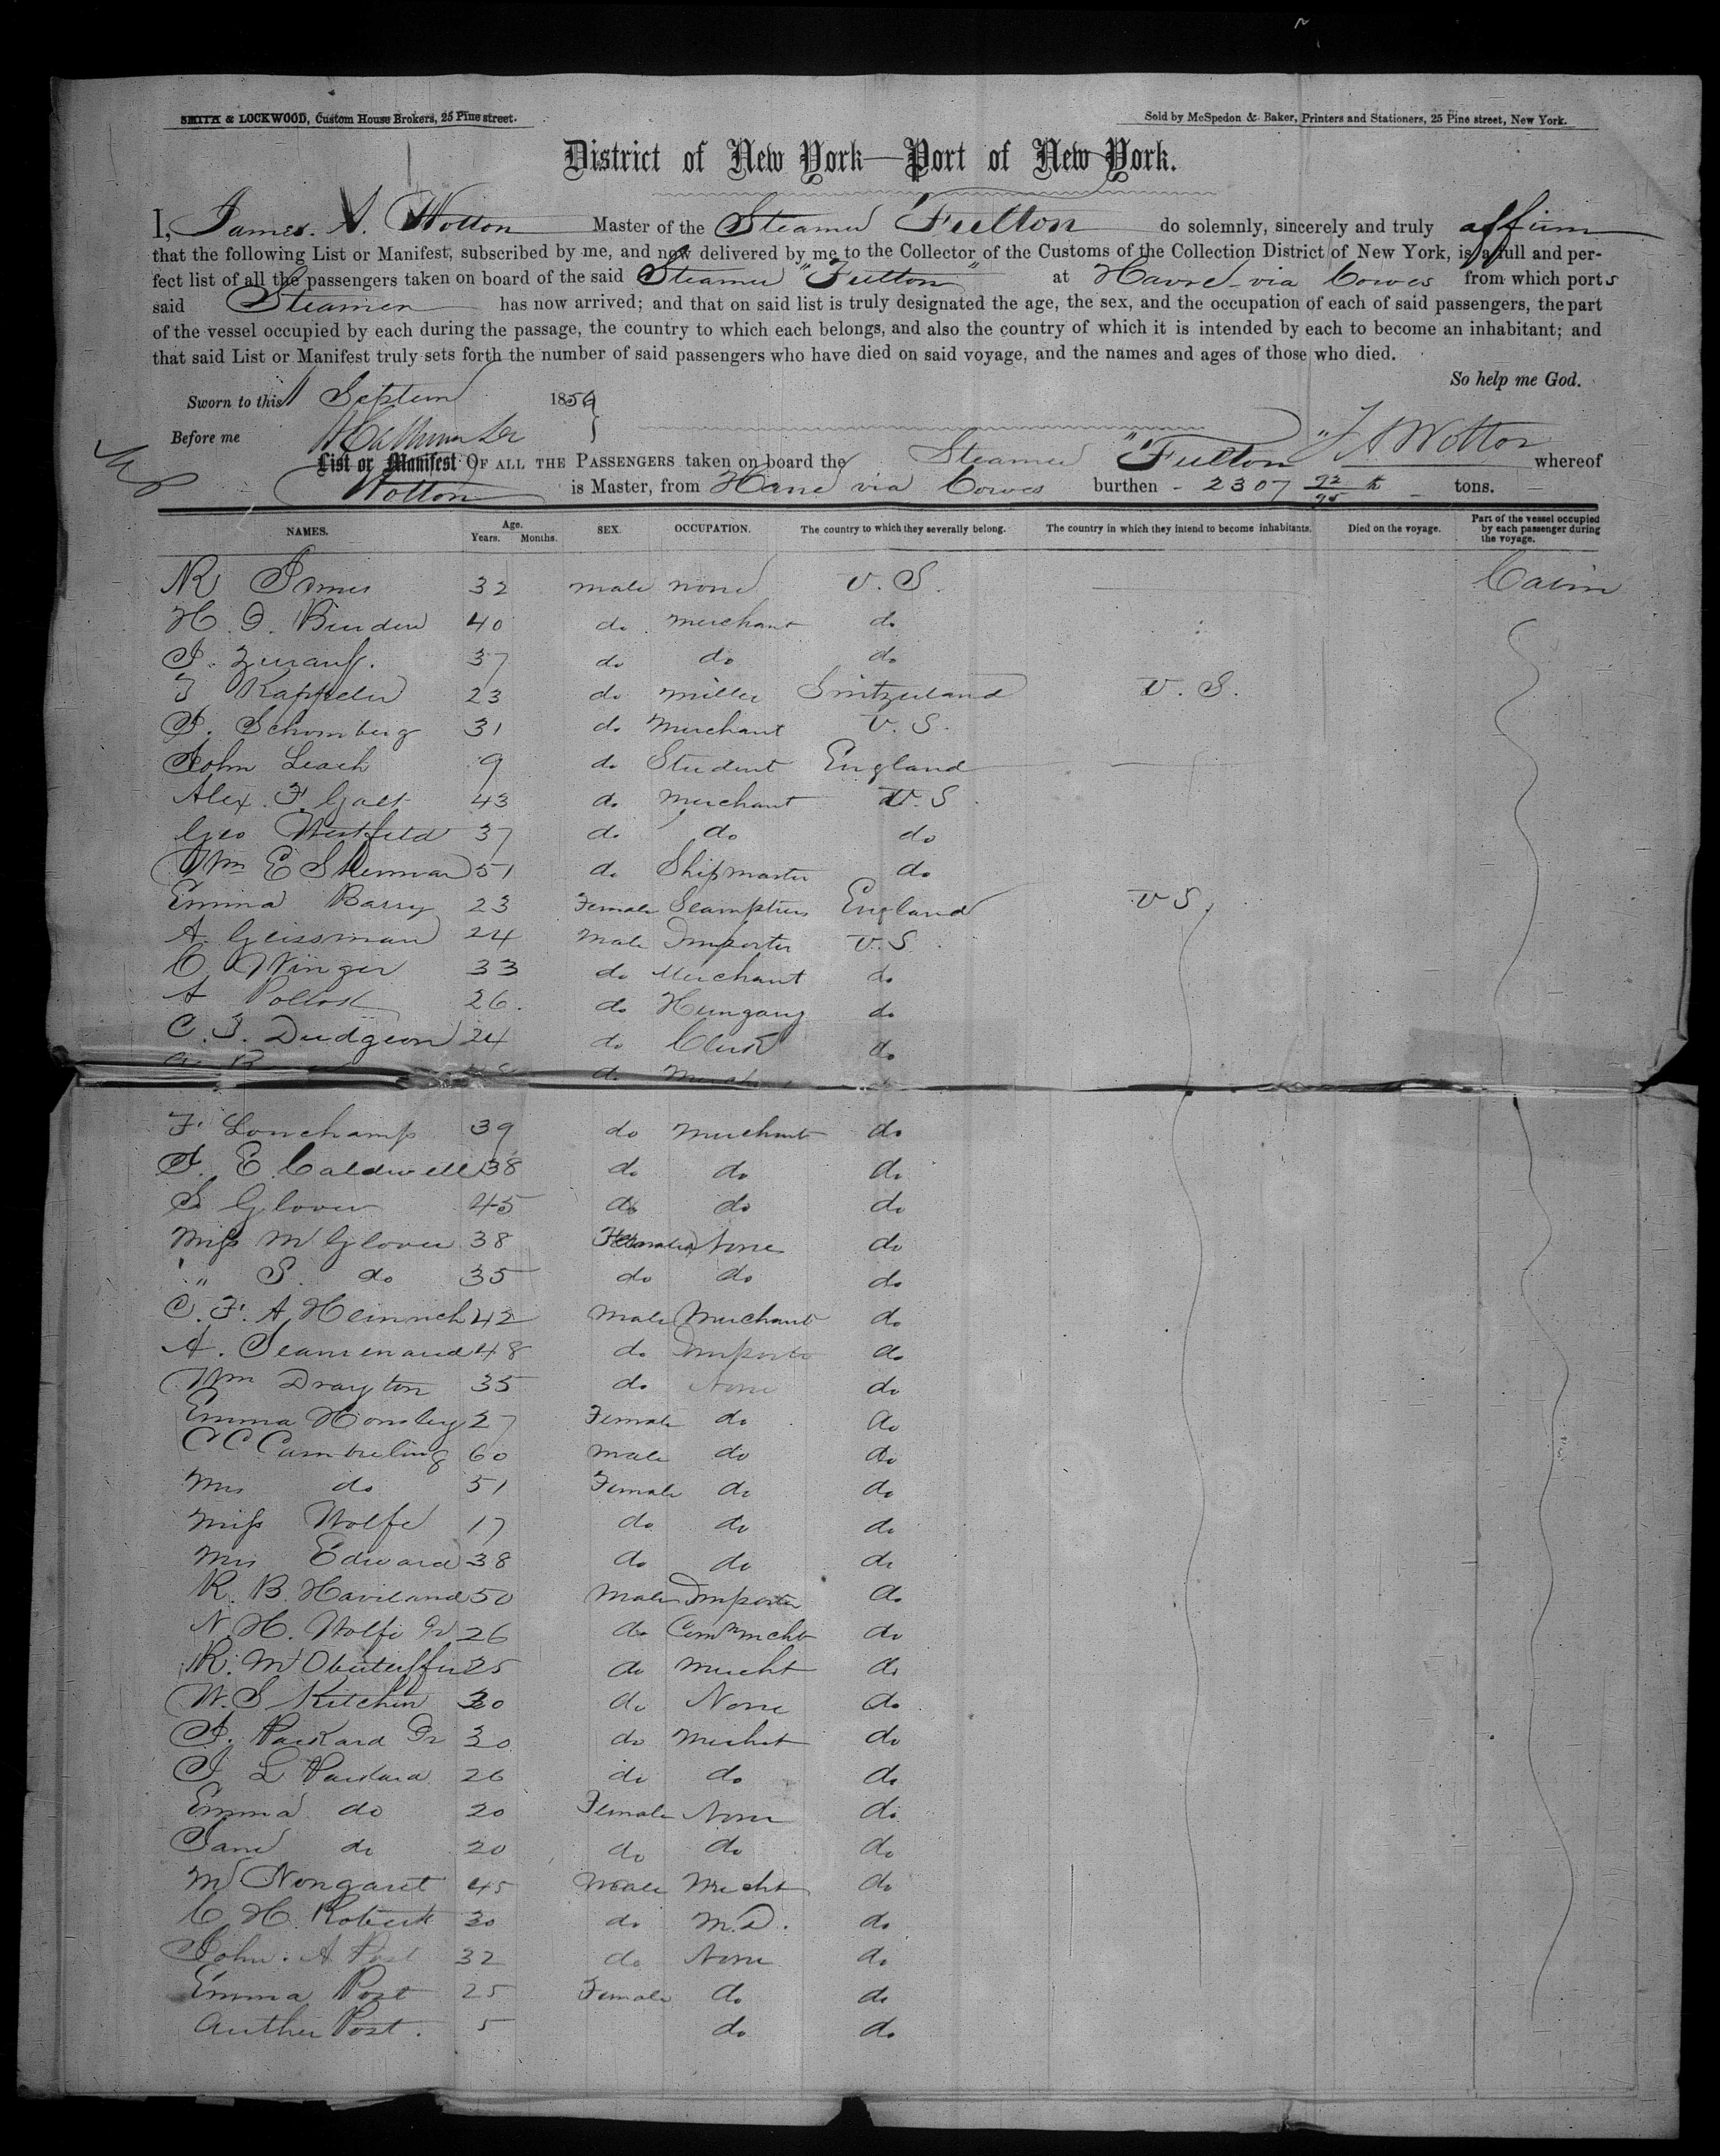 SMITH & LOCKWOOD, Custom House Brokers, 25 Pine street.
Sold by McSpedon & Baker, Printers and Stationers, 25 Pine street, New York.
District of New York—Port of New York.
I, James. A. Wotton Master of the Steamer Fulton do solemnly, sincerely and truly affirm
that the following List or Manifest, subscribed by me, and now delivered by me to the Collector of the Customs of the Collection District of New York, is a full and per-
fect list of all the passengers taken on board of the said Steamer "Fulton" at Havre via Cowes from which ports
said Steamer has now arrived; and that on said list is truly designated the age, the sex, and the occupation of each of said passengers, the part
of the vessel occupied by each during the passage, the country to which each belongs, and also the country of which it is intended by each to become an inhabitant; and
that said List or Manifest truly sets forth the number of said passengers who have died on said voyage, and the names and ages of those who died.
So help me God.
Sworn to this 1 Septem 1859
Before me J A Wotton
List or Manifest OF ALL THE PASSENGERS taken on board the Steamer "Fulton" whereof
Wotton is Master, from Havre via Cowes burthen - 2307 92/95 tons.
NAMES. Age. Years. Months. SEX. OCCUPATION. The country to which they severally belong. The country in which they intend to become inhabitants. Died on the voyage. Part of the vessel occupied by each passenger during the voyage.
32 male none U.S. Cabin
40 do merchant do
37 do do do
Kappeler 23 do miller Switzerland U.S.
Schomberg 31 do Merchant U.S.
John Leach 9 do Student England
Alex. F. Galt 43 do Merchant U.S
Geo Westfeld 37 do do do
Wm E Sherman 51 do Shipmaster do
Emma Barry 23 Female Seamptress England U S
A. Geissman 24 Male Importer U.S.
C Winger 33 do Merchant do
A 26. do Hungary do
C. J. Dudgeon 24 do Clerk do
do
F. Lonchamp 39 do merchant do
J. E. Caldwell 38 do do do
S Glover 45 do do do
Miss M Glover 38 Female None do
" S. do 35 do do do
C. F. A Heinrich 42 Male Merchant do
A. 48 do Importer do
Wm Drayton 35 do None do
Emma 27 Female do do
C C Cambreling 60 male do do
Mrs do 51 Female do do
Miss Wolfe 17 do do do
Mrs Edward 38 do do do
R. B. Haviland 50 Male Importer do
N. H. Wolfe Jr 26 do Com mcht do
R. M 25 do Mercht do
W. S Kitchin 30 do None do
J. Packard Jr 30 do Mercht do
J L Packard 26 do do do
Emma do 20 Female None do
Jane do 20 do do do
M Nongaret 45 Male Mercht do
C H. Roberts 30 do M.D. do
John. A Post 32 do None do
Emma Post 25 Female do do
Author Post. 5 do do